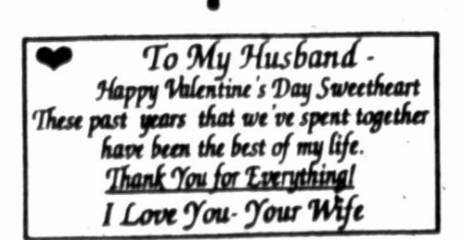 To My Husband -
Happy Valentine's Day Sweetheart
These past years that we've spent together
have been the best of my life.
Thank You for Everything!
I Love You- Your Wife